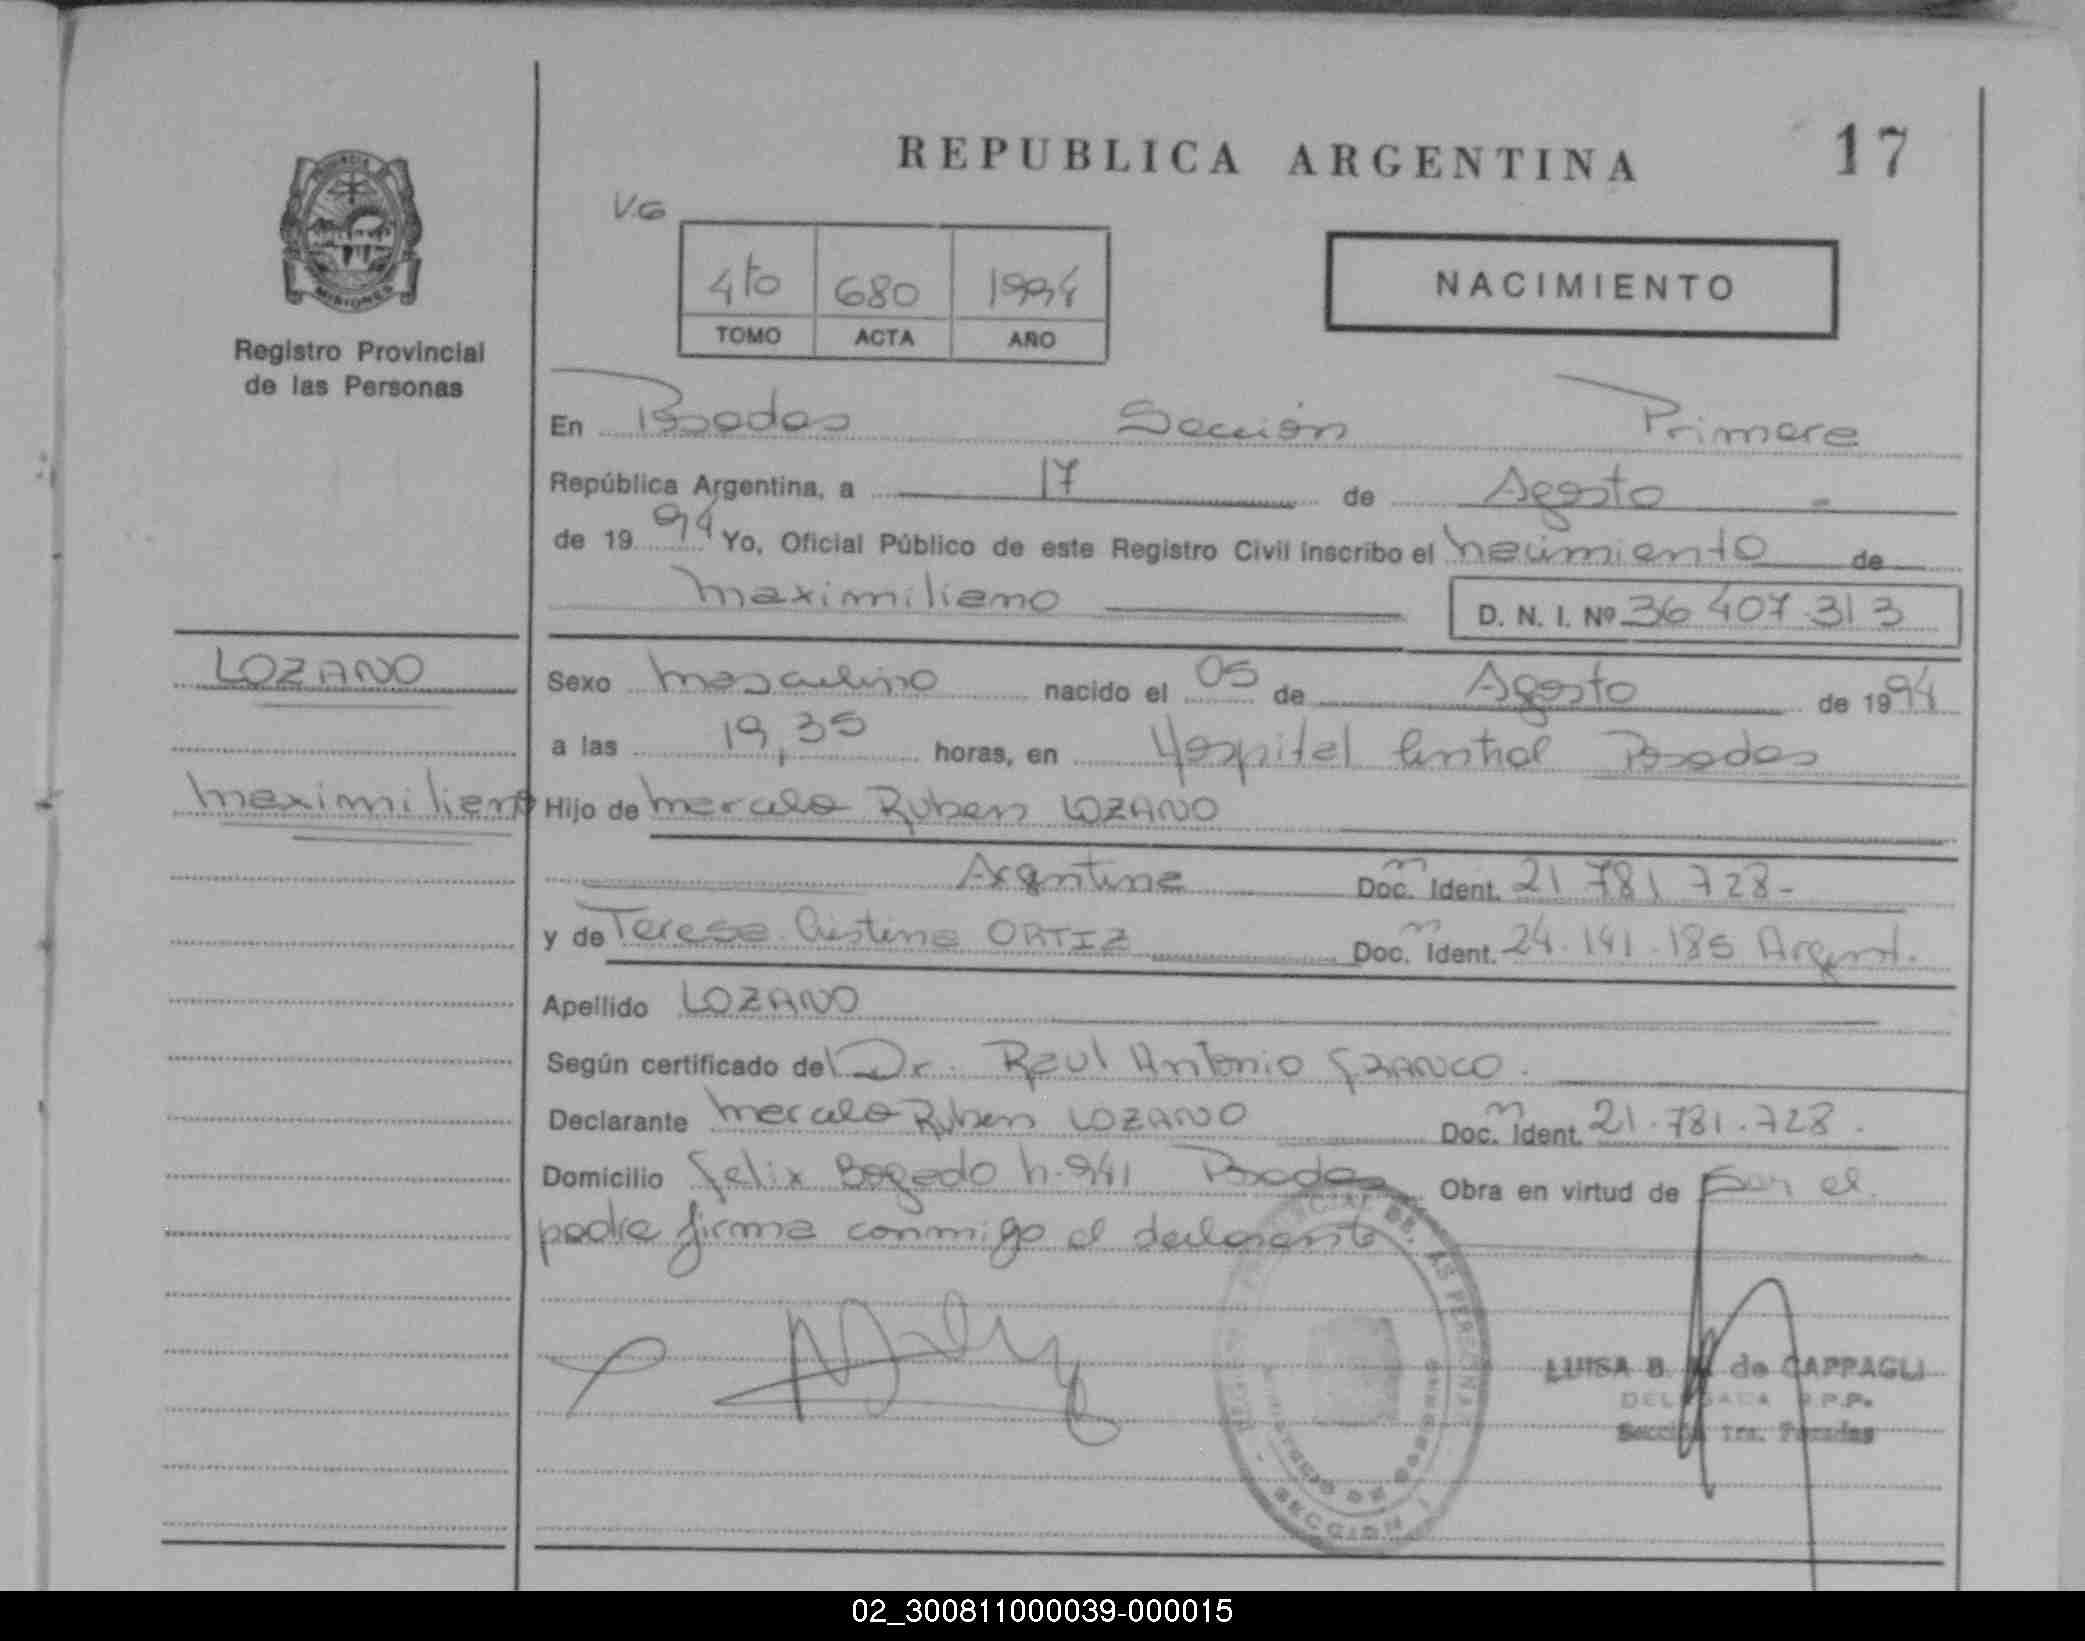 REPUBLICA ARGENTINA
17
V.G
4to 680 1994
TOMO ACTA AÑO
NACIMIENTO
PROVINCIA
MISIONES
Registro Provincial
de las Personas
En Posadas Sección Primera
República Argentina, a 17 de Agosto
de 1994 Yo, Oficial Público de este Registro Civil inscribo el nacimiento de
Maximiliano
D. N. I. Nº 36 407.313
LOZANO
Maximiliano
Sexo Masculino nacido el 05 de Agosto de 1994
a las 19,35 horas, en Hospital Central Posadas
Hijo de Marcelo Ruben LOZANO
Argentina Doc. Ident. 21 781 728-
y de Teresa Cristina ORTIZ Doc. Ident. 24.141.185 Argent.
Apellido LOZANO
Según certificado del Dr. Raul Antonio FRANCO.
Declarante Marcelo Ruben LOZANO Doc. Ident. 21.781.728.
Domicilio Felix Bogado n.941 Posadas Obra en virtud de ser el
padre firma conmigo el declarante
LUISA B. de CAPPAGLI
DELEGADA R.P.P.
Sección 1ra. Posadas
MINISTERIO DE GOBIERNO
SECCION
02_300811000039-000015